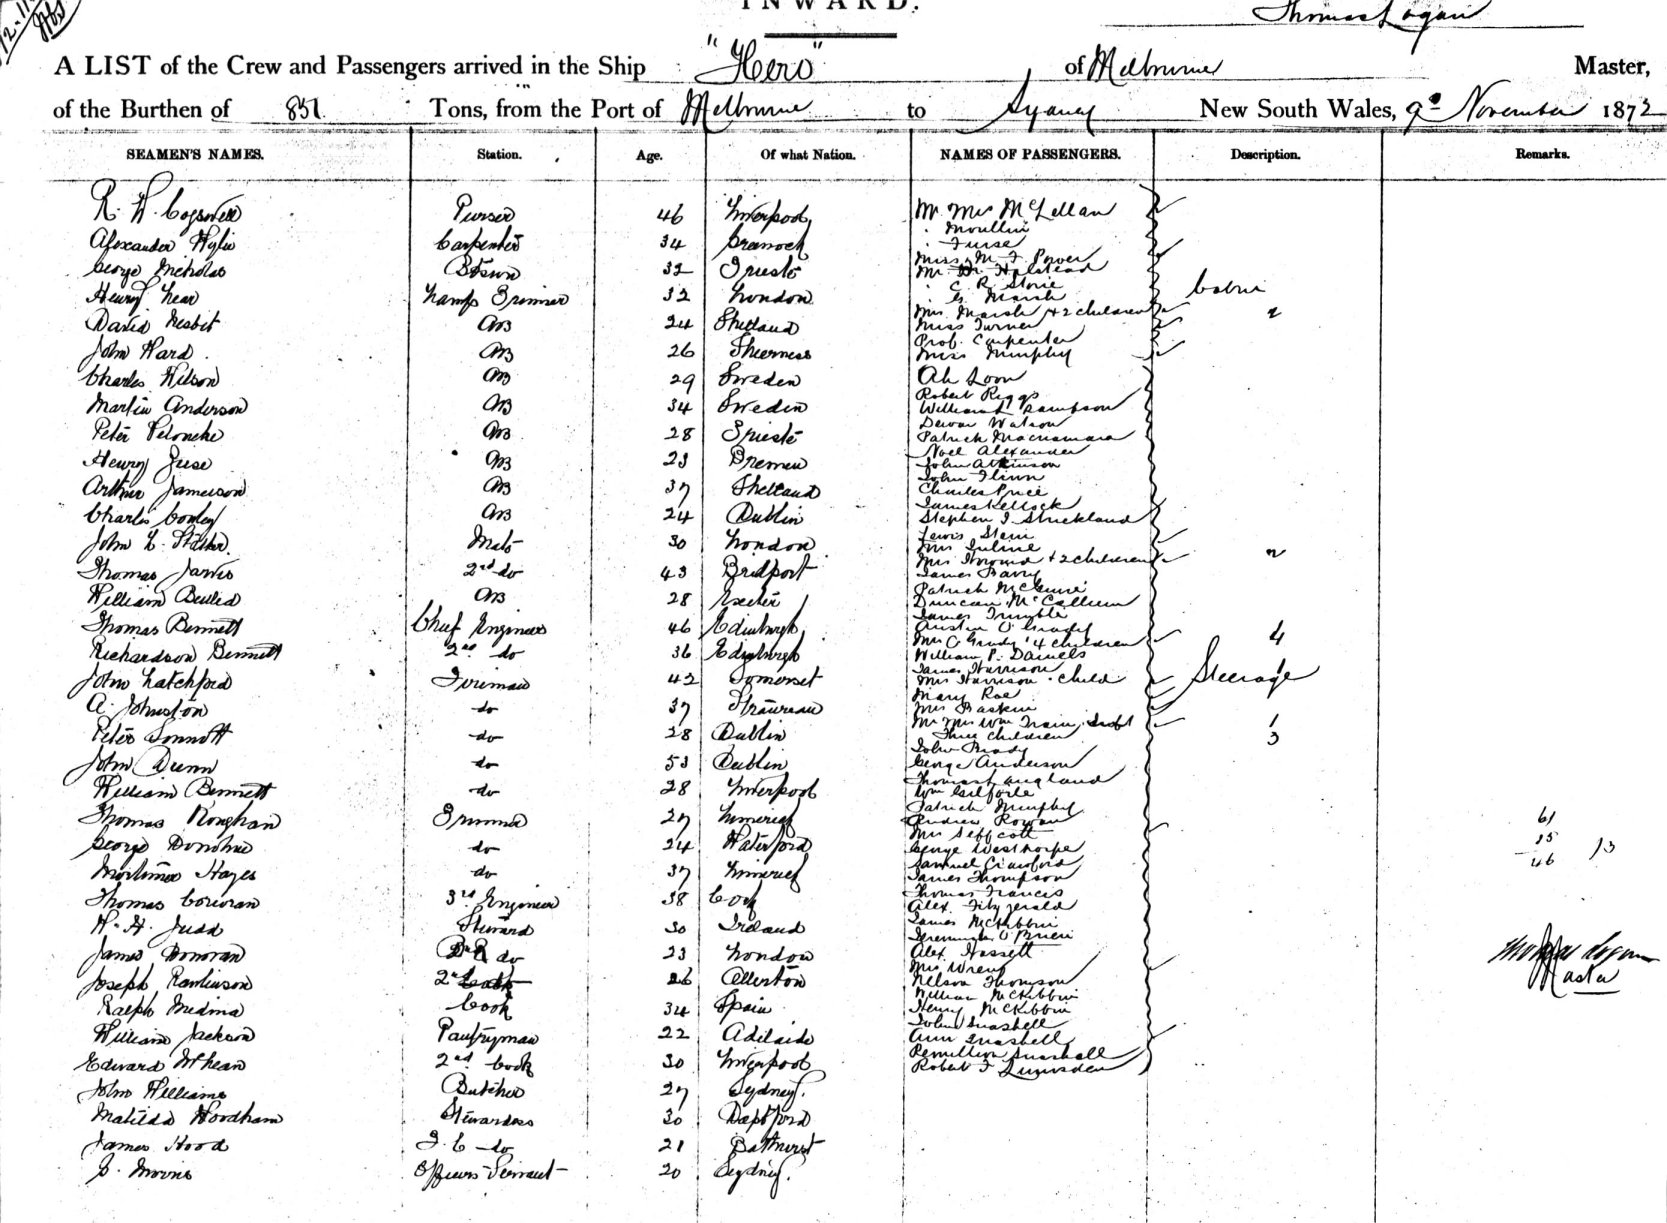 INWARD.
Thomas Logan
A LIST of the Crew and Passengers arrived in the Ship "Hero" of Melbourne Master,
of the Burthen of 851 Tons, from the Port of Melbourne to Sydney New South Wales, 9th November 1872
SEAMEN'S NAMES. Station. Age. Of what Nation. NAMES OF PASSENGERS. Description. Remarks.
R. W. Cogswell Purser 46 Liverpool
Alexander Wylie Carpenter 34 Greenock
George Nicholas Bosun 32 Trieste
Henry Near Lamp Trimmer 32 London
David Nesbit AB 24 Shetland
John Ward AB 26 Sheerness
Charles Wilson AB 29 Sweden
Martin Anderson AB 34 Sweden
Peter AB 28 Trieste
Henry AB 23 Bremen
Arthur Jamerson AB 37 Shetland
Charles Conley AB 24 Dublin
John L. Mate 30 London
Thomas Jarvis 2nd do 43 Bridport
William AB 28 Exeter
Thomas Bennett Chief Engineer 46 Edinburgh
Richardson Bennett 2nd do 36 Edinburgh
John Latchford Fireman 42 Somerset
A. Johnston do 37 Stranraer
Peter Sonnott do 28 Dublin
John Dunn do 53 Dublin
William Bennett do 28 Liverpool
Thomas Ronghan Trimmer 27 Limerick
George Donohue do 24 Waterford
Mortimer Hayes do 37 Limerick
Thomas Corcoran 3rd Engineer 38 Cork
H. H. Judd Steward 30 Ireland
James Donovan do 23 London
Joseph Rawlinson 2nd Cook 26 Ollerton
Ralph Medina Cook 34 Spain
William Jackson Pantryman 22 Adelaide
Edward McKean 2nd Cook 30 Liverpool
John Williams Butcher 27 Sydney.
Matilda Woodham Stewardess 30 Deptford
James Hood do 21 Bathurst
S. Morris Officers Servant 20 Sydney.
Mr Mrs McLellan
" Moullin
" Furse
Miss M. F. Power
Mr Halstead
" C. R. Stone
" G. Marsh
Mrs Marsh + 2 children 2
Miss Turner
Prof. Carpenter
Miss Murphy
Cabin
Ah Loon
Robert Riggs
William Sampson
Dewar Watson
Patrick Macnamara
Noel Alexander
John Atkinson
John Flinn
Charles Price
James Kellock
Stephen J. Strickland
Lewis Stein
Mrs
Mrs + 2 children 2
James Barry
Patrick McGuire
Duncan McCallum
James Trimble
Austin O'Grady
Mrs O'Grady 4 children 4
William P. Daniels
James Harrison
Mrs Harrison child 1
Steerage
Mary Rae
Mrs Baskin
Mr Mrs Wm Train, Inft 1
Three children 3
John Brady
George Anderson
Thomas Langland
Wm Gilfoyle
Patrick Murphy
Andrew Rowan
Mrs Jeffcott
George Westhorpe
Samuel Crawford
James Thompson
Thomas Francis
Alex. Fitzgerald
James McKibbin
Jeremiah O'Brien
Alex. Hassett
Mrs Wren
Nelson Thompson
William McKibbin
Henry McKibbin
John Snashell
Ann Snashell
Snashell
Robert F Lumsden
61
15
46 13
Thomas Logan
Master